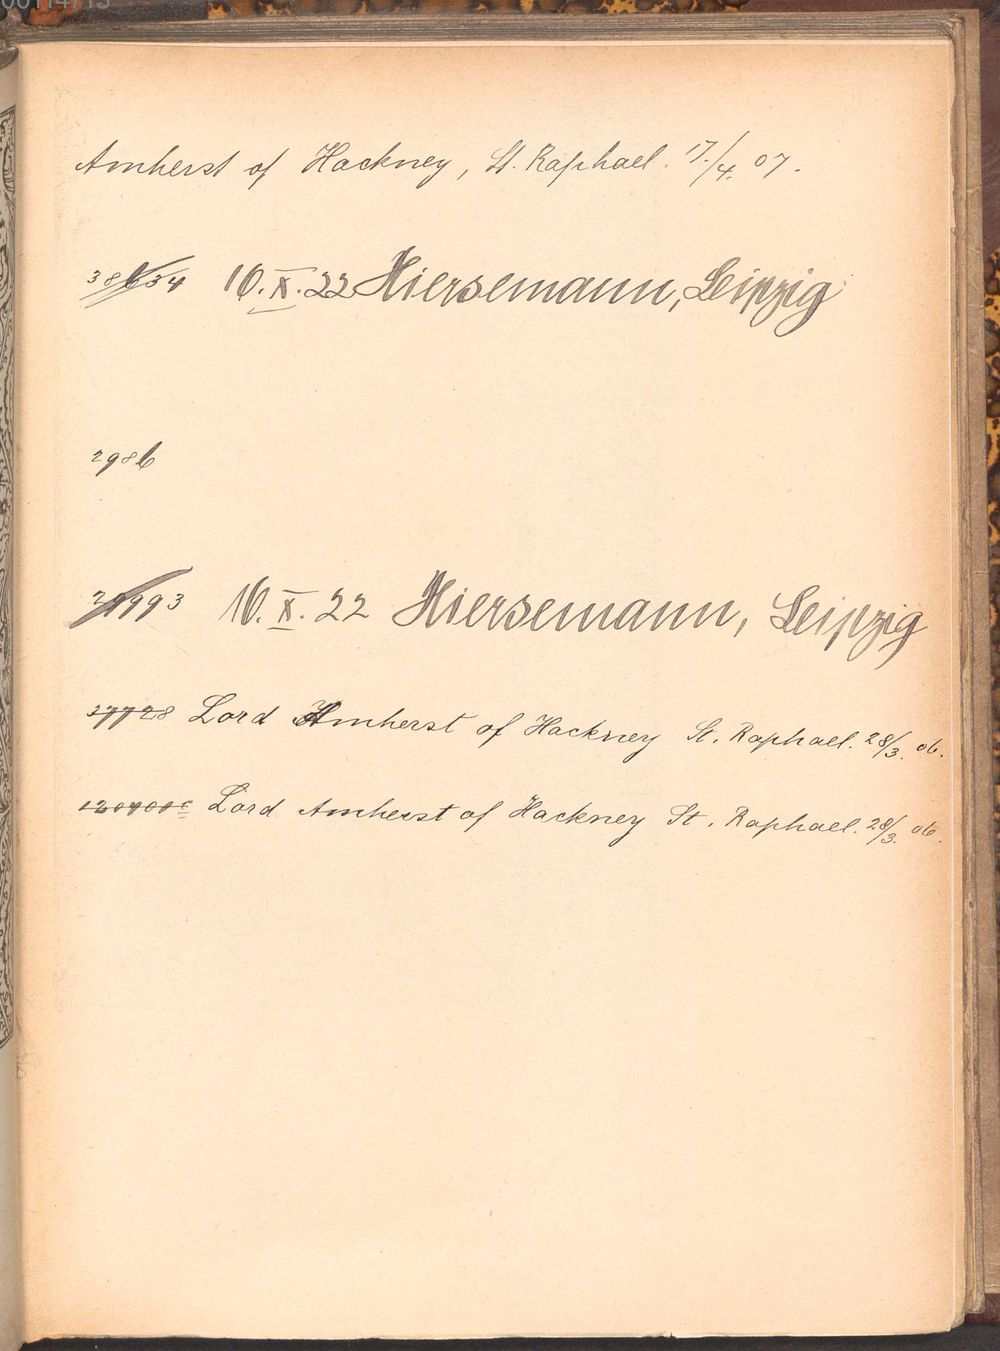 00114713
Amherst of Hackney, St. Raphael. 17./4. 07.
38634 10.X.22 Hiersemann, Leipzig
2986
10.X.22 Hiersemann, Leipzig
27728 Lord Amherst of Hackney St. Raphael. 28/3. 06.
Lord Amherst of Hackney St. Raphael. 28/3. 06.